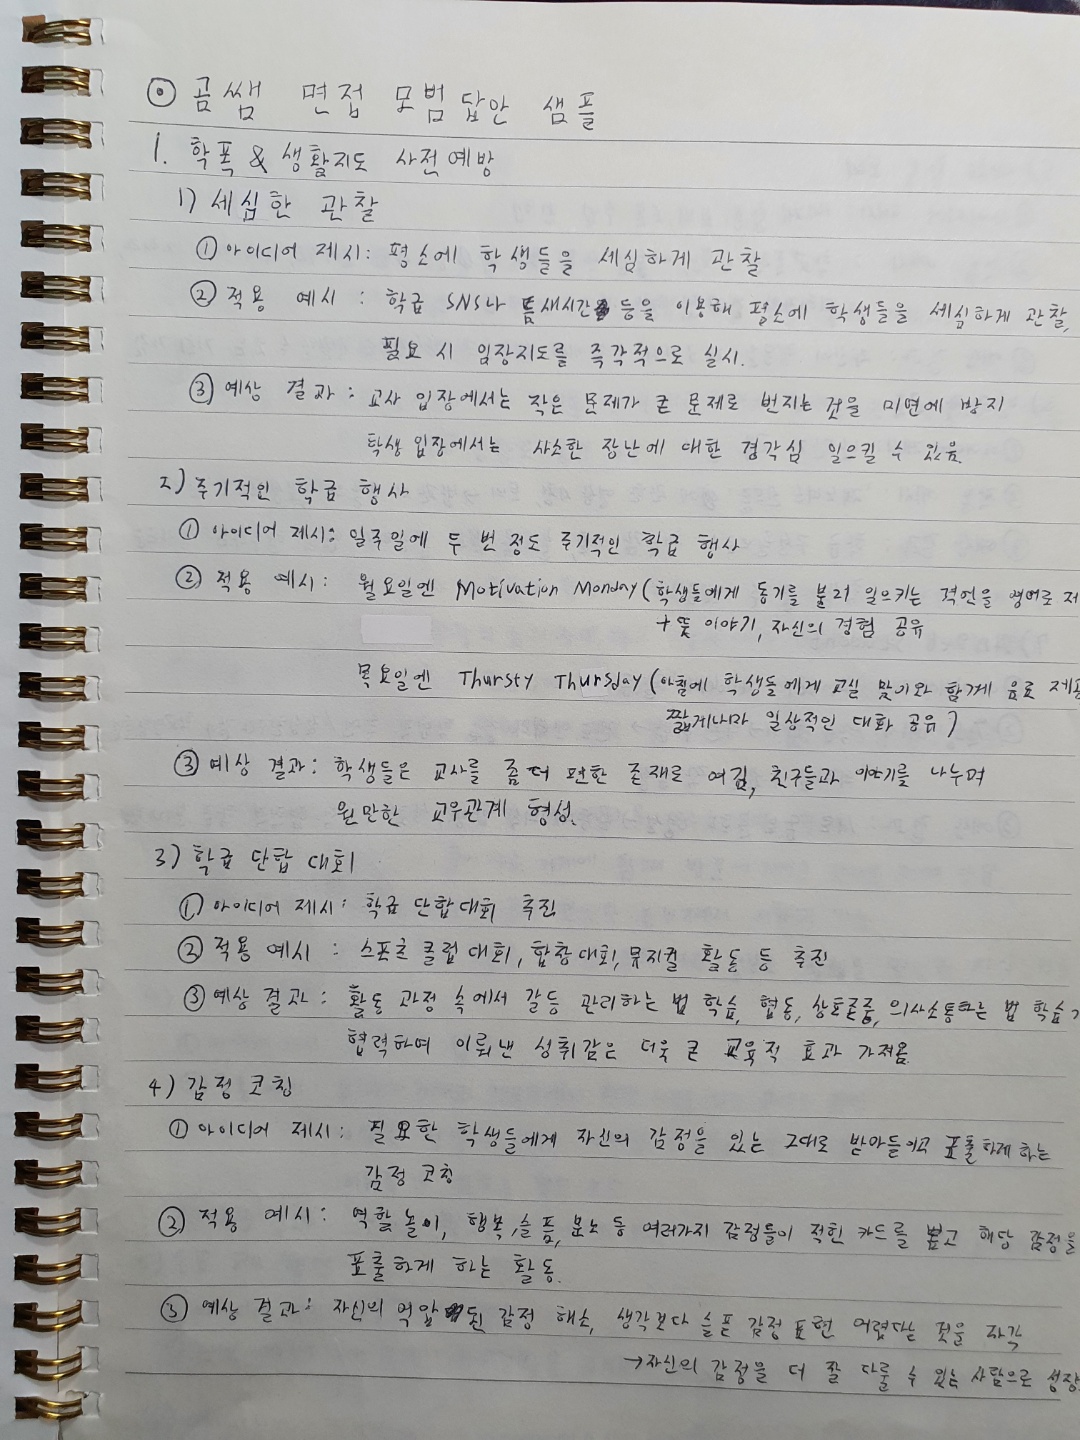 ⊙ 곰쌤 면접 모범답안 샘플
1. 학폭 & 생활지도 사전예방
1) 세심한 관찰
① 아이디어 제시: 평소에 학생들을 세심하게 관찰
② 적용 예시 : 학급 SNS나 틈새시간 등을 이용해 평소에 학생들을 세심하게 관찰,
필요 시 임장지도를 즉각적으로 실시.
③ 예상 결과 : 교사 입장에서는 작은 문제가 큰 문제로 번지는 것을 미연에 방지
학생 입장에서는 사소한 장난에 대한 경각심 일으킬 수 있음
2) 주기적인 학급 행사
① 아이디어 제시: 일주일에 두 번 정도 주기적인 학급 행사
② 적용 예시: 월요일엔 Motivation Monday (학생들에게 동기를 불러 일으키는 격언을 영어로 제
+ 뜻 이야기, 자신의 경험 공유
목요일엔 Thursty Thursday (아침에 학생들에게 교실 맞이와 함께 음료 제공
짧게나마 일상적인 대화 공유)
③ 예상 결과: 학생들은 교사를 좀 더 편한 존재로 여김, 친구들과 이야기를 나누며
원만한 교우관계 형성.
3) 학급 단합 대회
① 아이디어 제시: 학급 단합대회 추진
② 적용 예시 : 스포츠 클럽대회, 합창대회, 뮤지컬 활동 등 추진
③ 예상 결과 : 활동 과정 속에서 갈등 관리하는 법 학습, 협동, 상호존중, 의사소통하는 법 학습
협력하여 이뤄낸 성취감은 더욱 큰 교육적 효과 가져옴
4) 감정 코칭
① 아이디어 제시: 필요한 학생들에게 자신의 감정을 있는 그대로 받아들이고 표출하게 하는
감정 코칭
② 적용 예시: 역할 놀이, 행복, 슬픔, 분노 등 여러가지 감정들이 적힌 카드를 뽑고 해당 감정을
표출하게 하는 활동.
③ 예상 결과: 자신의 억압된 감정 해소, 생각보다 슬픈 감정 표현 어렵다는 것을 자각
→자신의 감정을 더 잘 다룰 수 있는 사람으로 성장